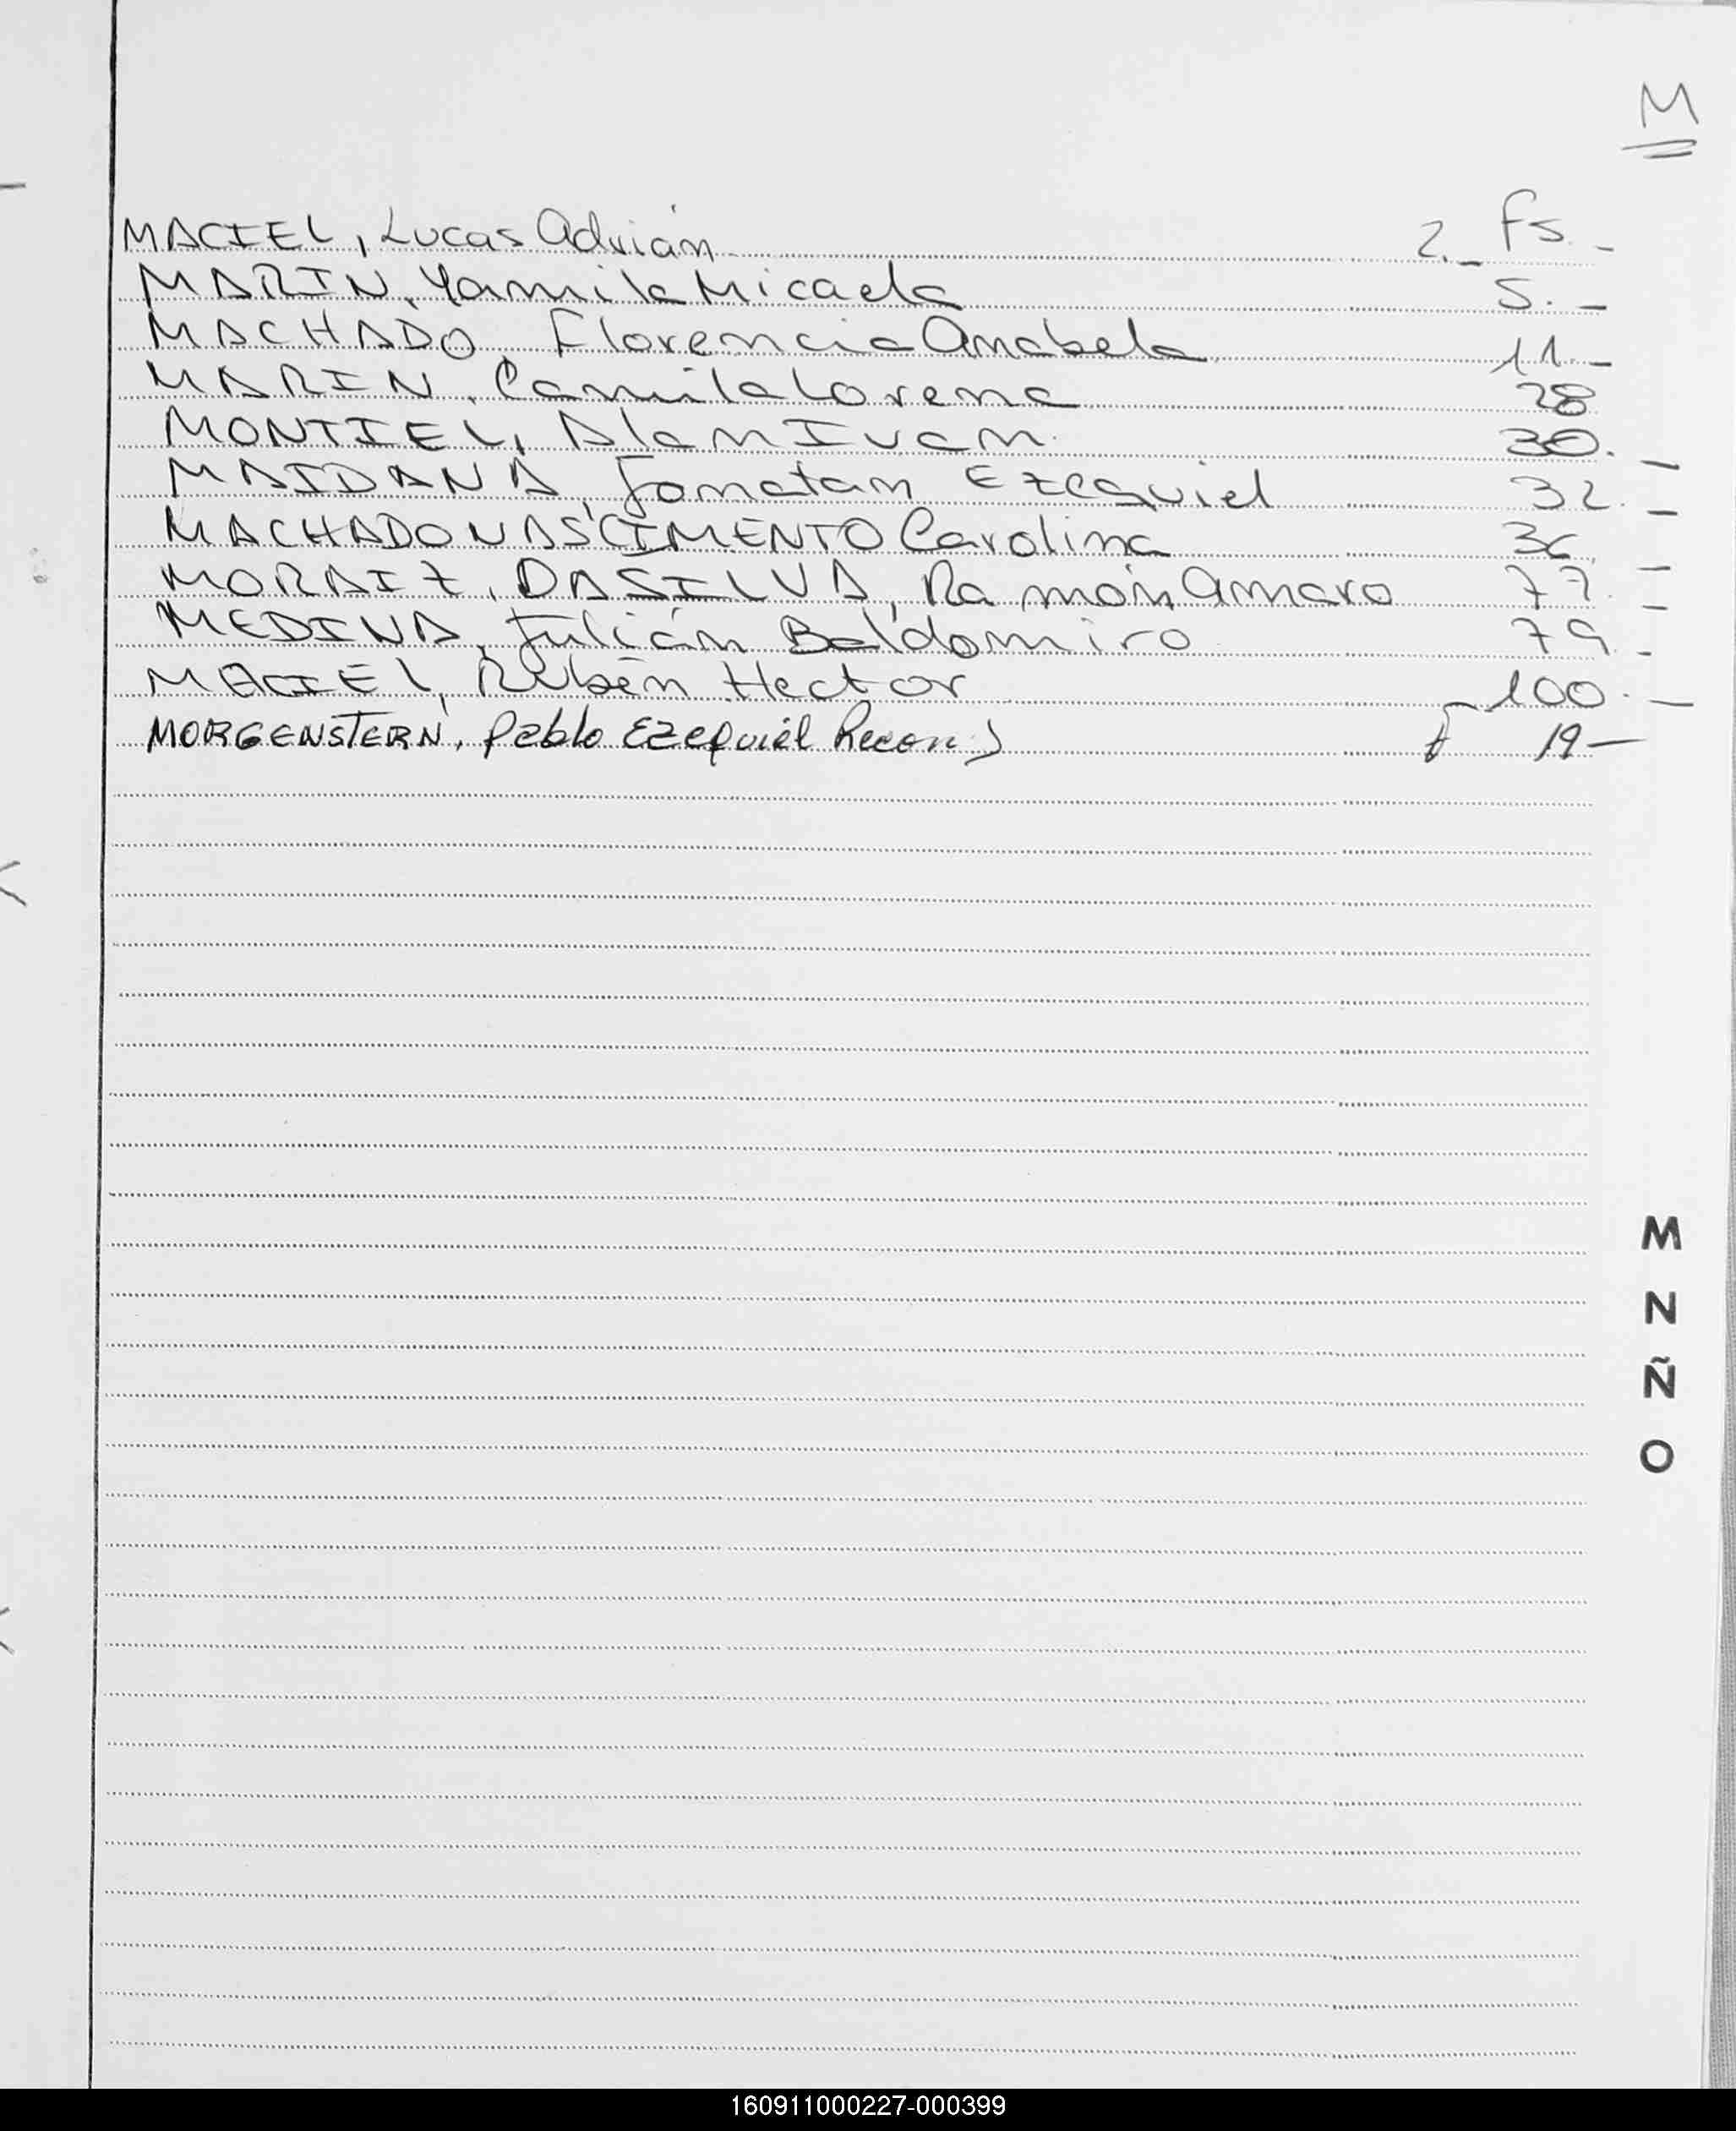 M
fs. -
MACIEL, Lucas Adrián 2. -
MARIN, Yamila Micaela 5. -
MACHADO, Florencia Anabela 11. -
MARIN, Camila Lorena 28
MONTIEL, Alan Ivan 30. -
MAIDANA, Jonatan Ezequiel 32. -
MACHADO NASCIMENTO Carolina 36 -
MORAIZ, DA SILVA, Ramón Amaro 77. -
MEDINA, Julián Baldomiro 79. -
MACIEL, Rubén Hector 100. -
MORGENSTERN, Pablo Ezequiel Recon) f 19 -
M
N
Ñ
O
160911000227-000399